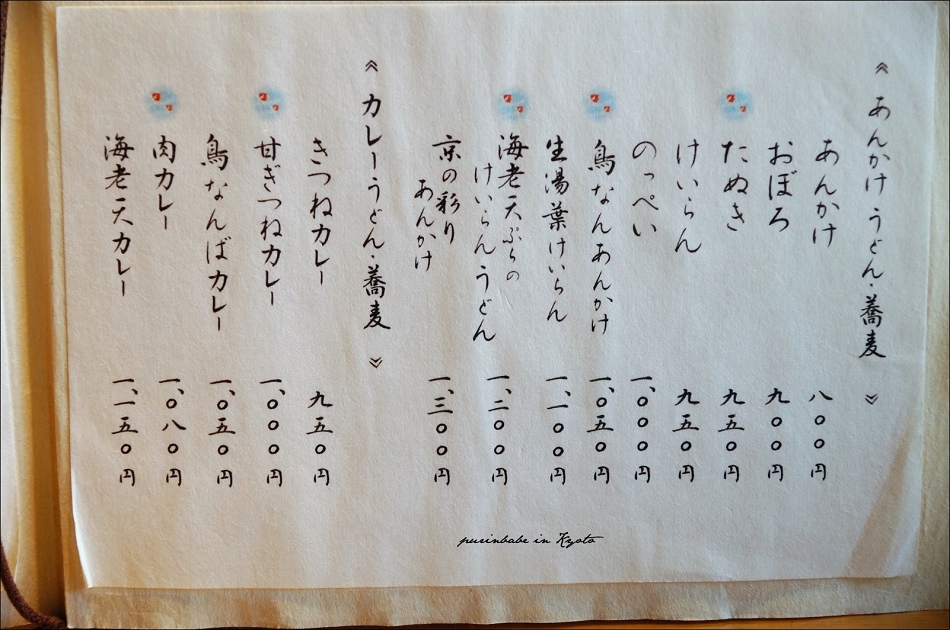 《あんかけうどん・蕎麦》
あんかけ 八〇〇円
おぼろ 九〇〇円
たぬき 九五〇円
けいらん 九五〇円
のっぺい 一、〇〇〇円
鳥なんあんかけ 一、〇五〇円
生湯葉けいらん 一、一〇〇円
海老天ぷらの
けいらんうどん 一、二〇〇円
京の彩り
あんかけ 一、三〇〇円
《カレーうどん・蕎麦》
きつねカレー 九五〇円
甘ぎつねカレー 一、〇〇〇円
鳥なんばカレー 一、〇五〇円
肉カレー 一、〇八〇円
海老天カレー 一、一五〇円
purinbabe in Kyoto